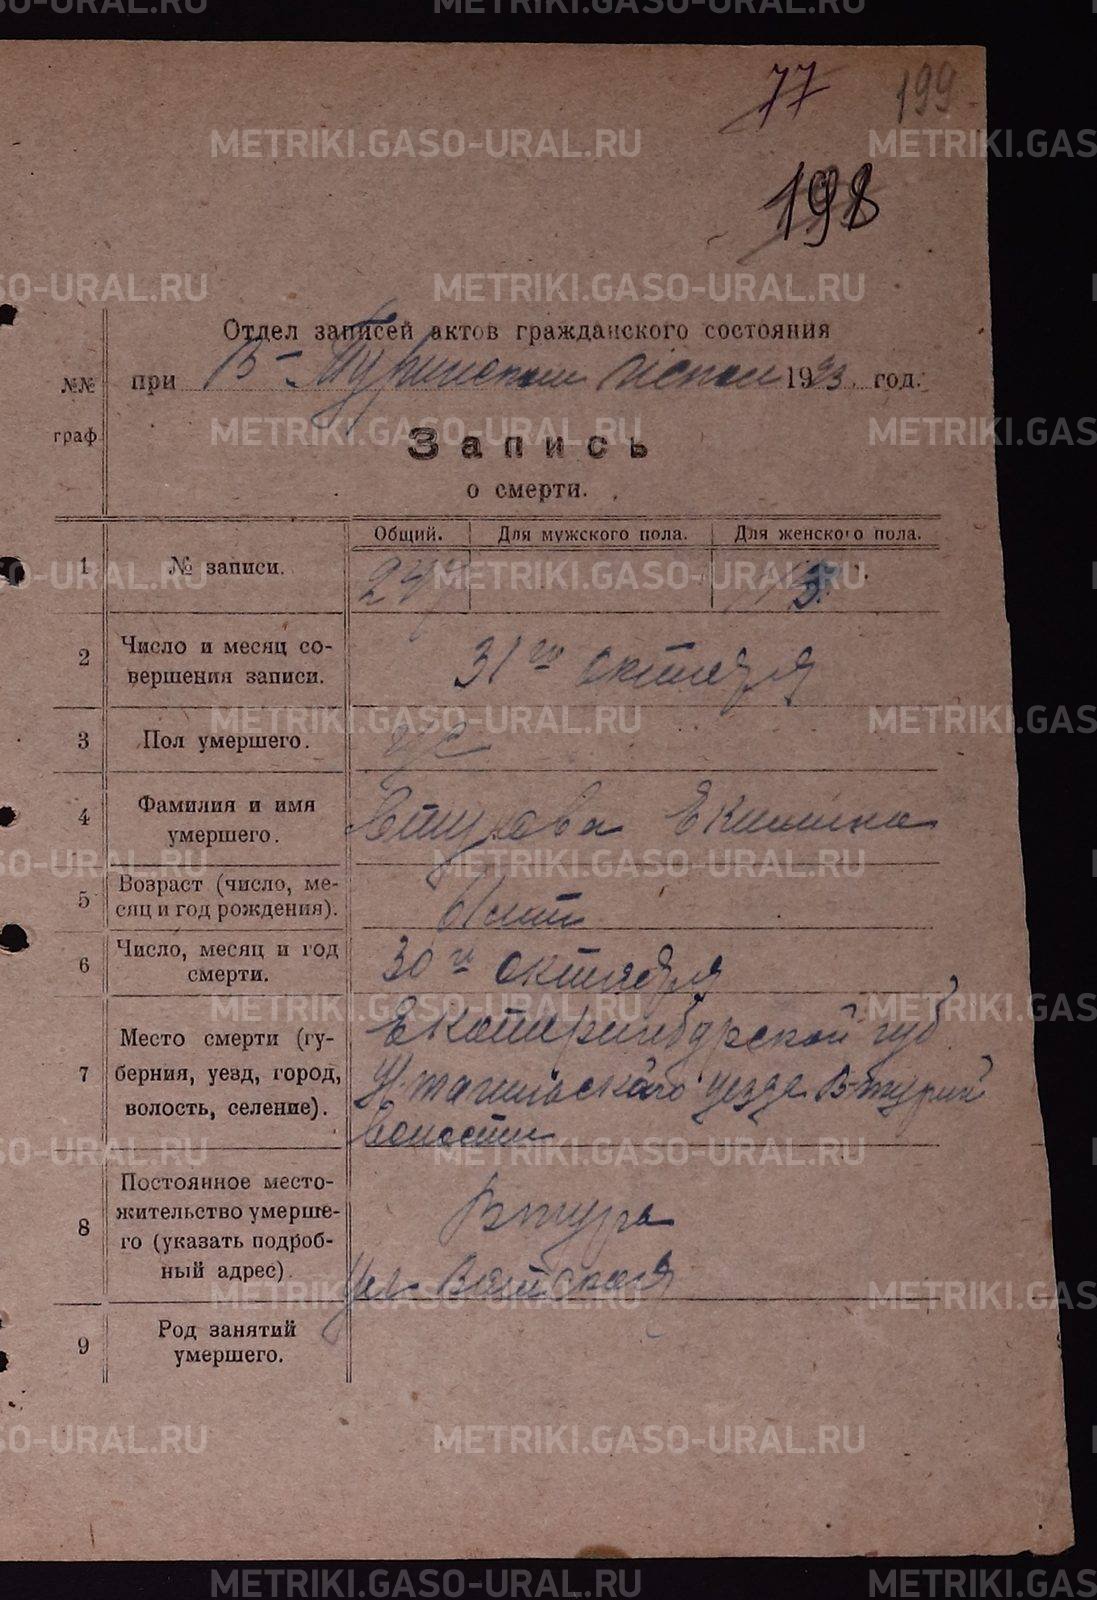 77
199
198
Отдел записей актов гражданского состояния
№№ граф
при В-Туринском испол 1923 год.
Запись
о смерти.
Общий. Для мужского пола. Для женского пола.
1 № записи.
2 Число и месяц со-
вершения записи.
31го октября
3 Пол умершего.
4 Фамилия и имя
умершего.
5 Возраст (число, ме-
сяц и год рождения).
6 Число, месяц и год
смерти.
30го октября
7 Место смерти (гу-
берния, уезд, город,
волость, селение).
Екатеринбурской губ
Н-тагильского уезда В-турин
волости
8 Постоянное место-
жительство умерше-
го (указать подроб-
ный адрес).
В тура
ул-
9 Род занятий
умершего.
METRIKI.GASO-URAL.RU